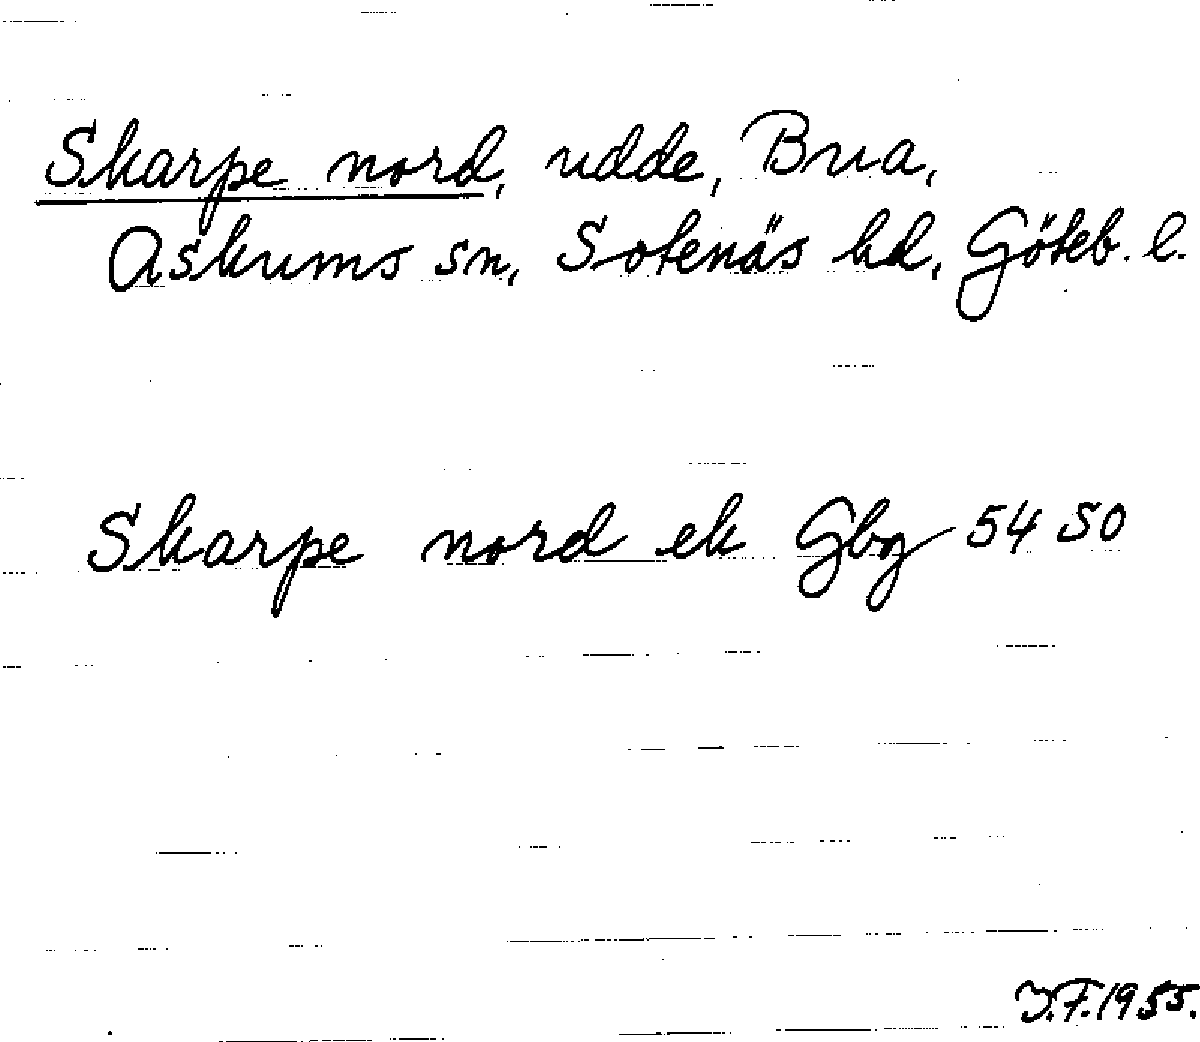 Skarpe nord, udde, Brua,
Askums sn, Sotenäs hd, Göteb. l.
Skarpe nord ek Gbg 54 50
J.F. 1955.